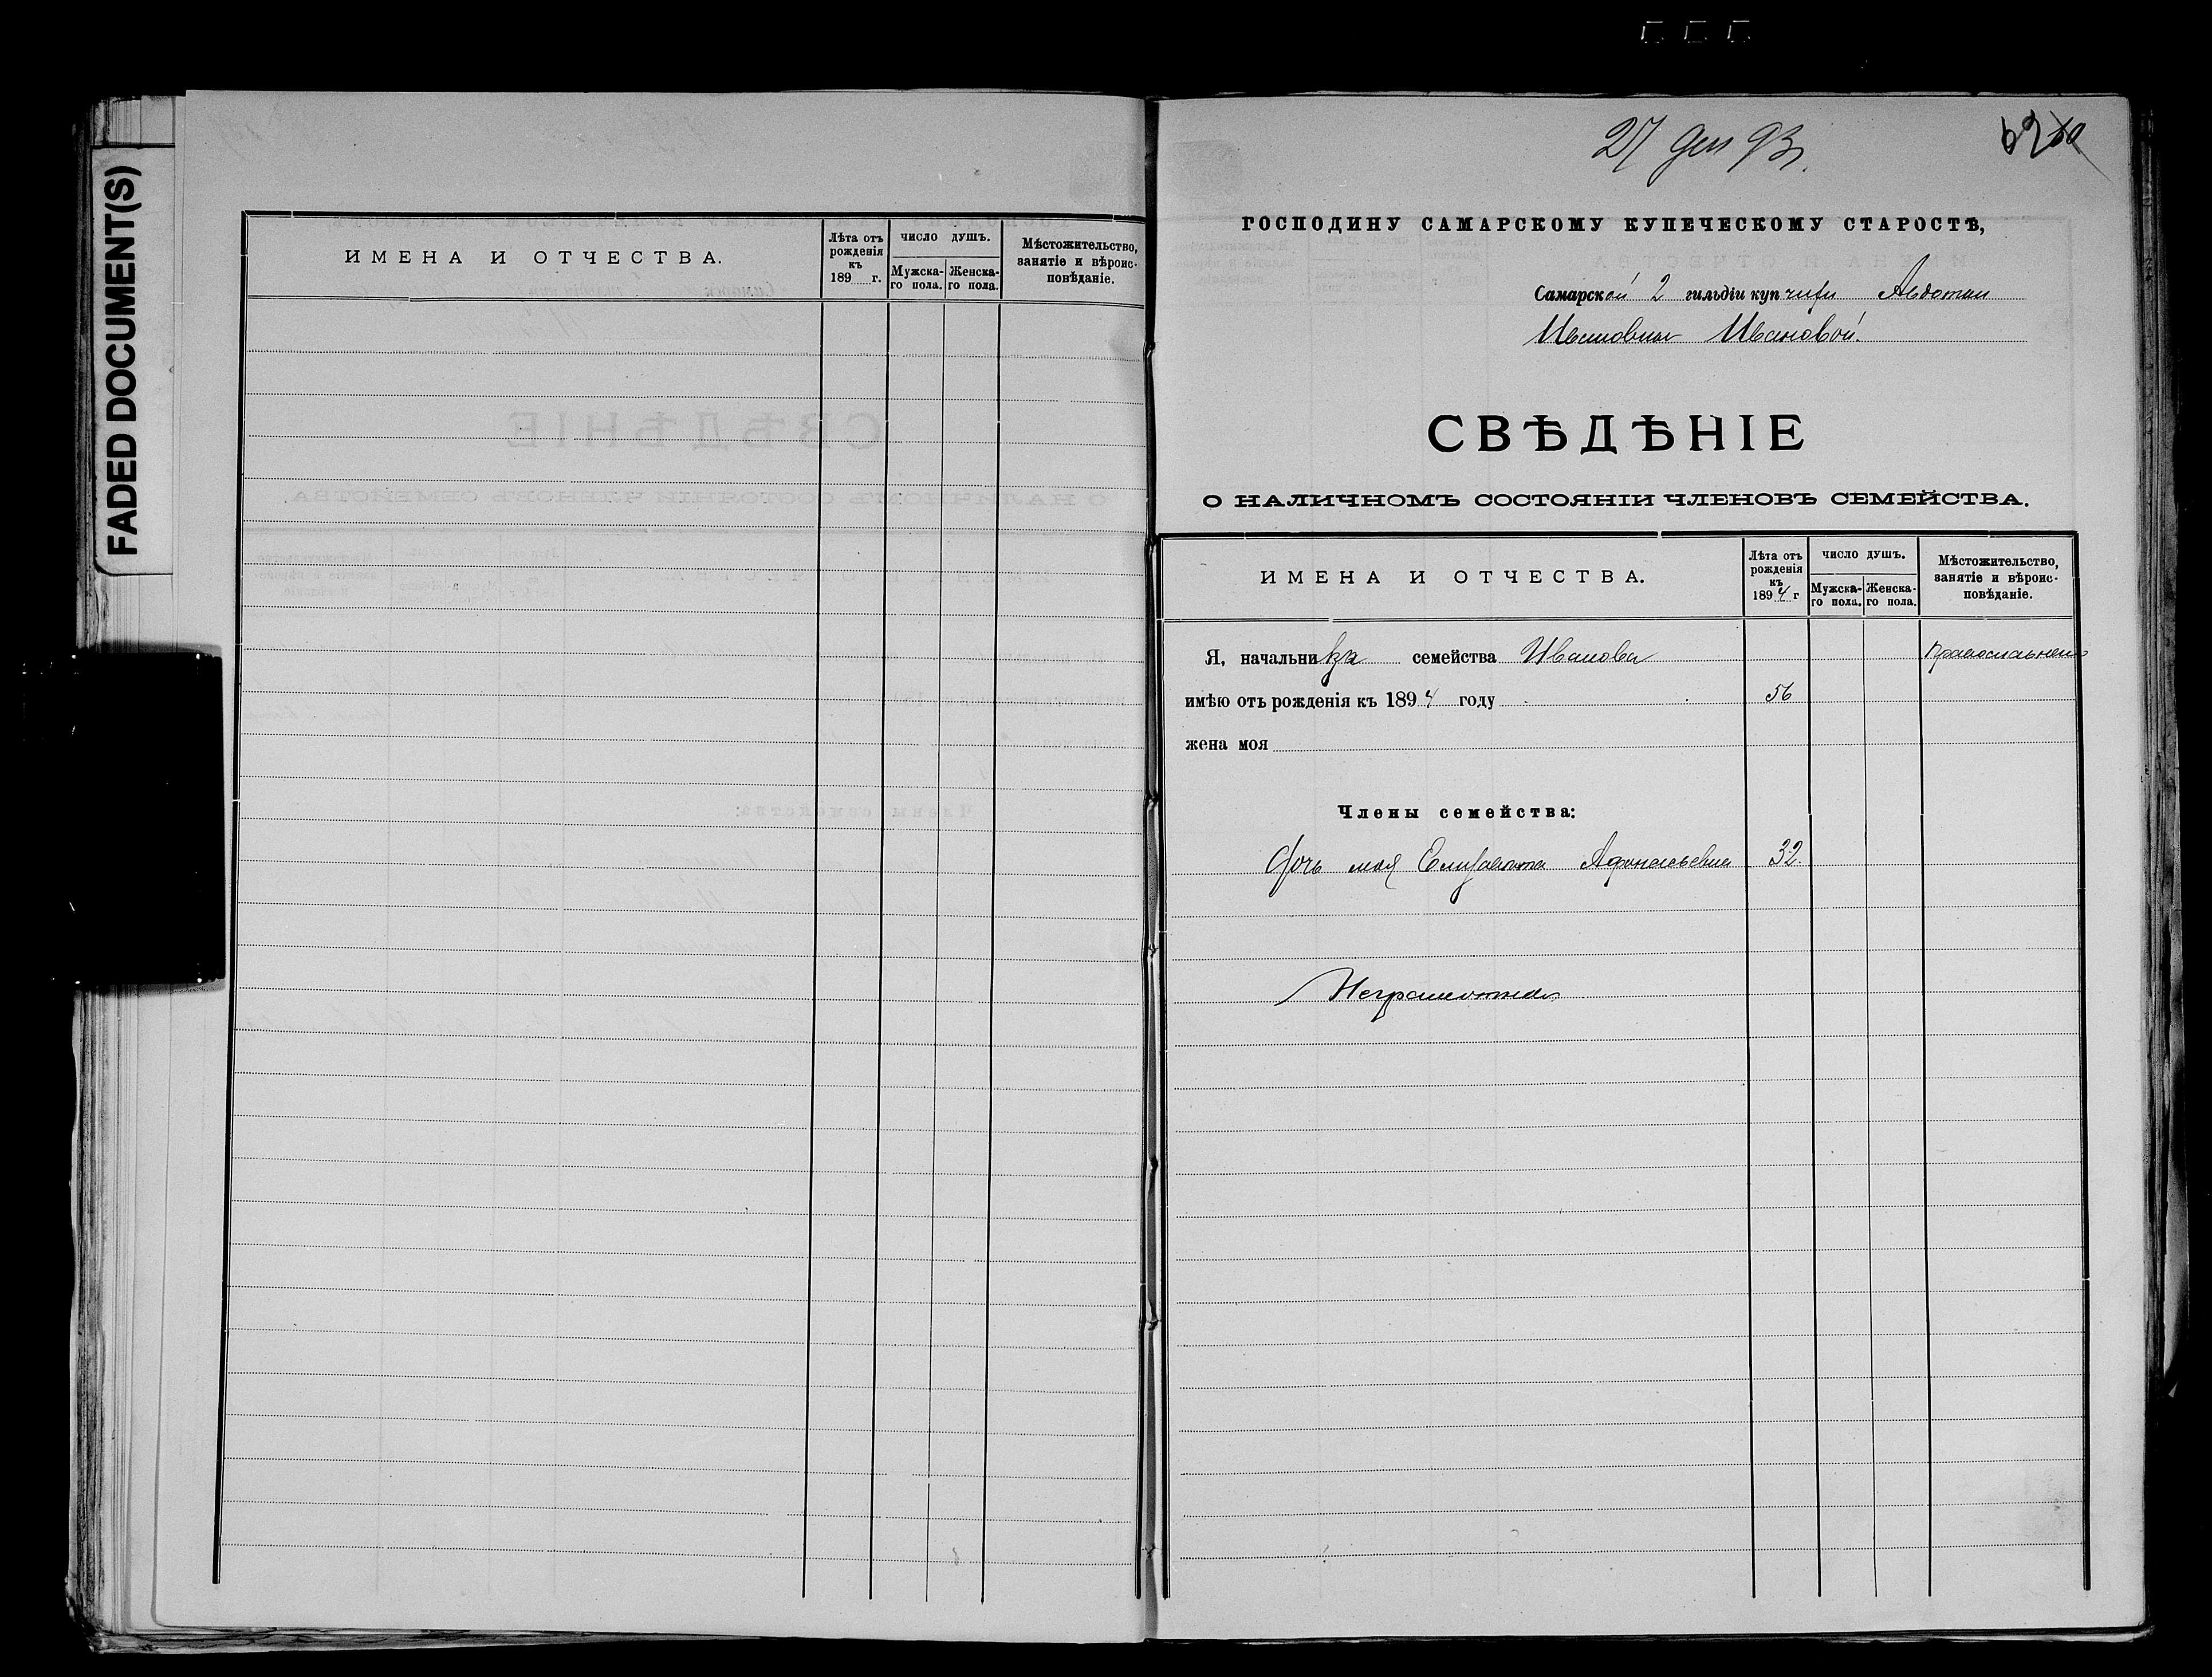 FADED DOCUMENT(S)
ИМЕНА И ОТЧЕСТВА.
Лѣта отъ рожденія къ 189 г.
ЧИСЛО ДУШЪ.
Мужска-го пола.
Женска-го пола.
Мѣстожительство, занятіе и вѣроис-повѣданіе.
27 дек 93 г.
62
ГОСПОДИНУ САМАРСКОМУ КУПЕЧЕСКОМУ СТАРОСТѢ,
Самарской 2 гильдіи купчихи Авдотьи
Ивановны Ивановой.
СВѢДѢНІЕ
О НАЛИЧНОМЪ СОСТОЯНІИ ЧЛЕНОВЪ СЕМЕЙСТВА.
ИМЕНА И ОТЧЕСТВА.
Лѣта отъ рожденія къ 1894 г
ЧИСЛО ДУШЪ.
Мужска-го пола.
Женска-го пола.
Мѣстожительство, занятіе и вѣроис-повѣданіе.
Я, начальница семейства Иванова
имѣю отъ рожденія къ 1894 году 56
жена моя
Члены семейства:
Дочь моя Елизавета Афанасьевна 32
Неграмотная